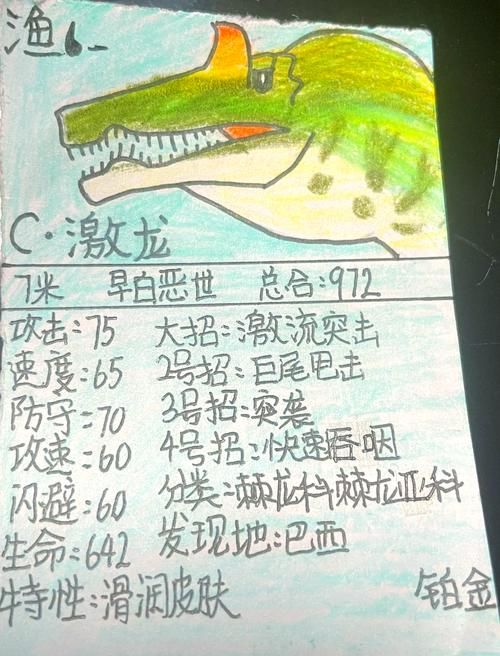 渔6-
C·激龙
7米 早白恶世 总合:972
攻击:75 大招:激流突击
速度:65 2号招:巨尾甩击
防守:70 3号招:突袭
攻速:60 4号招:快速吞咽
闪避:60 分类:棘龙科棘龙亚科
生命:642 发现地:巴西
特性:滑润皮肤 铂金